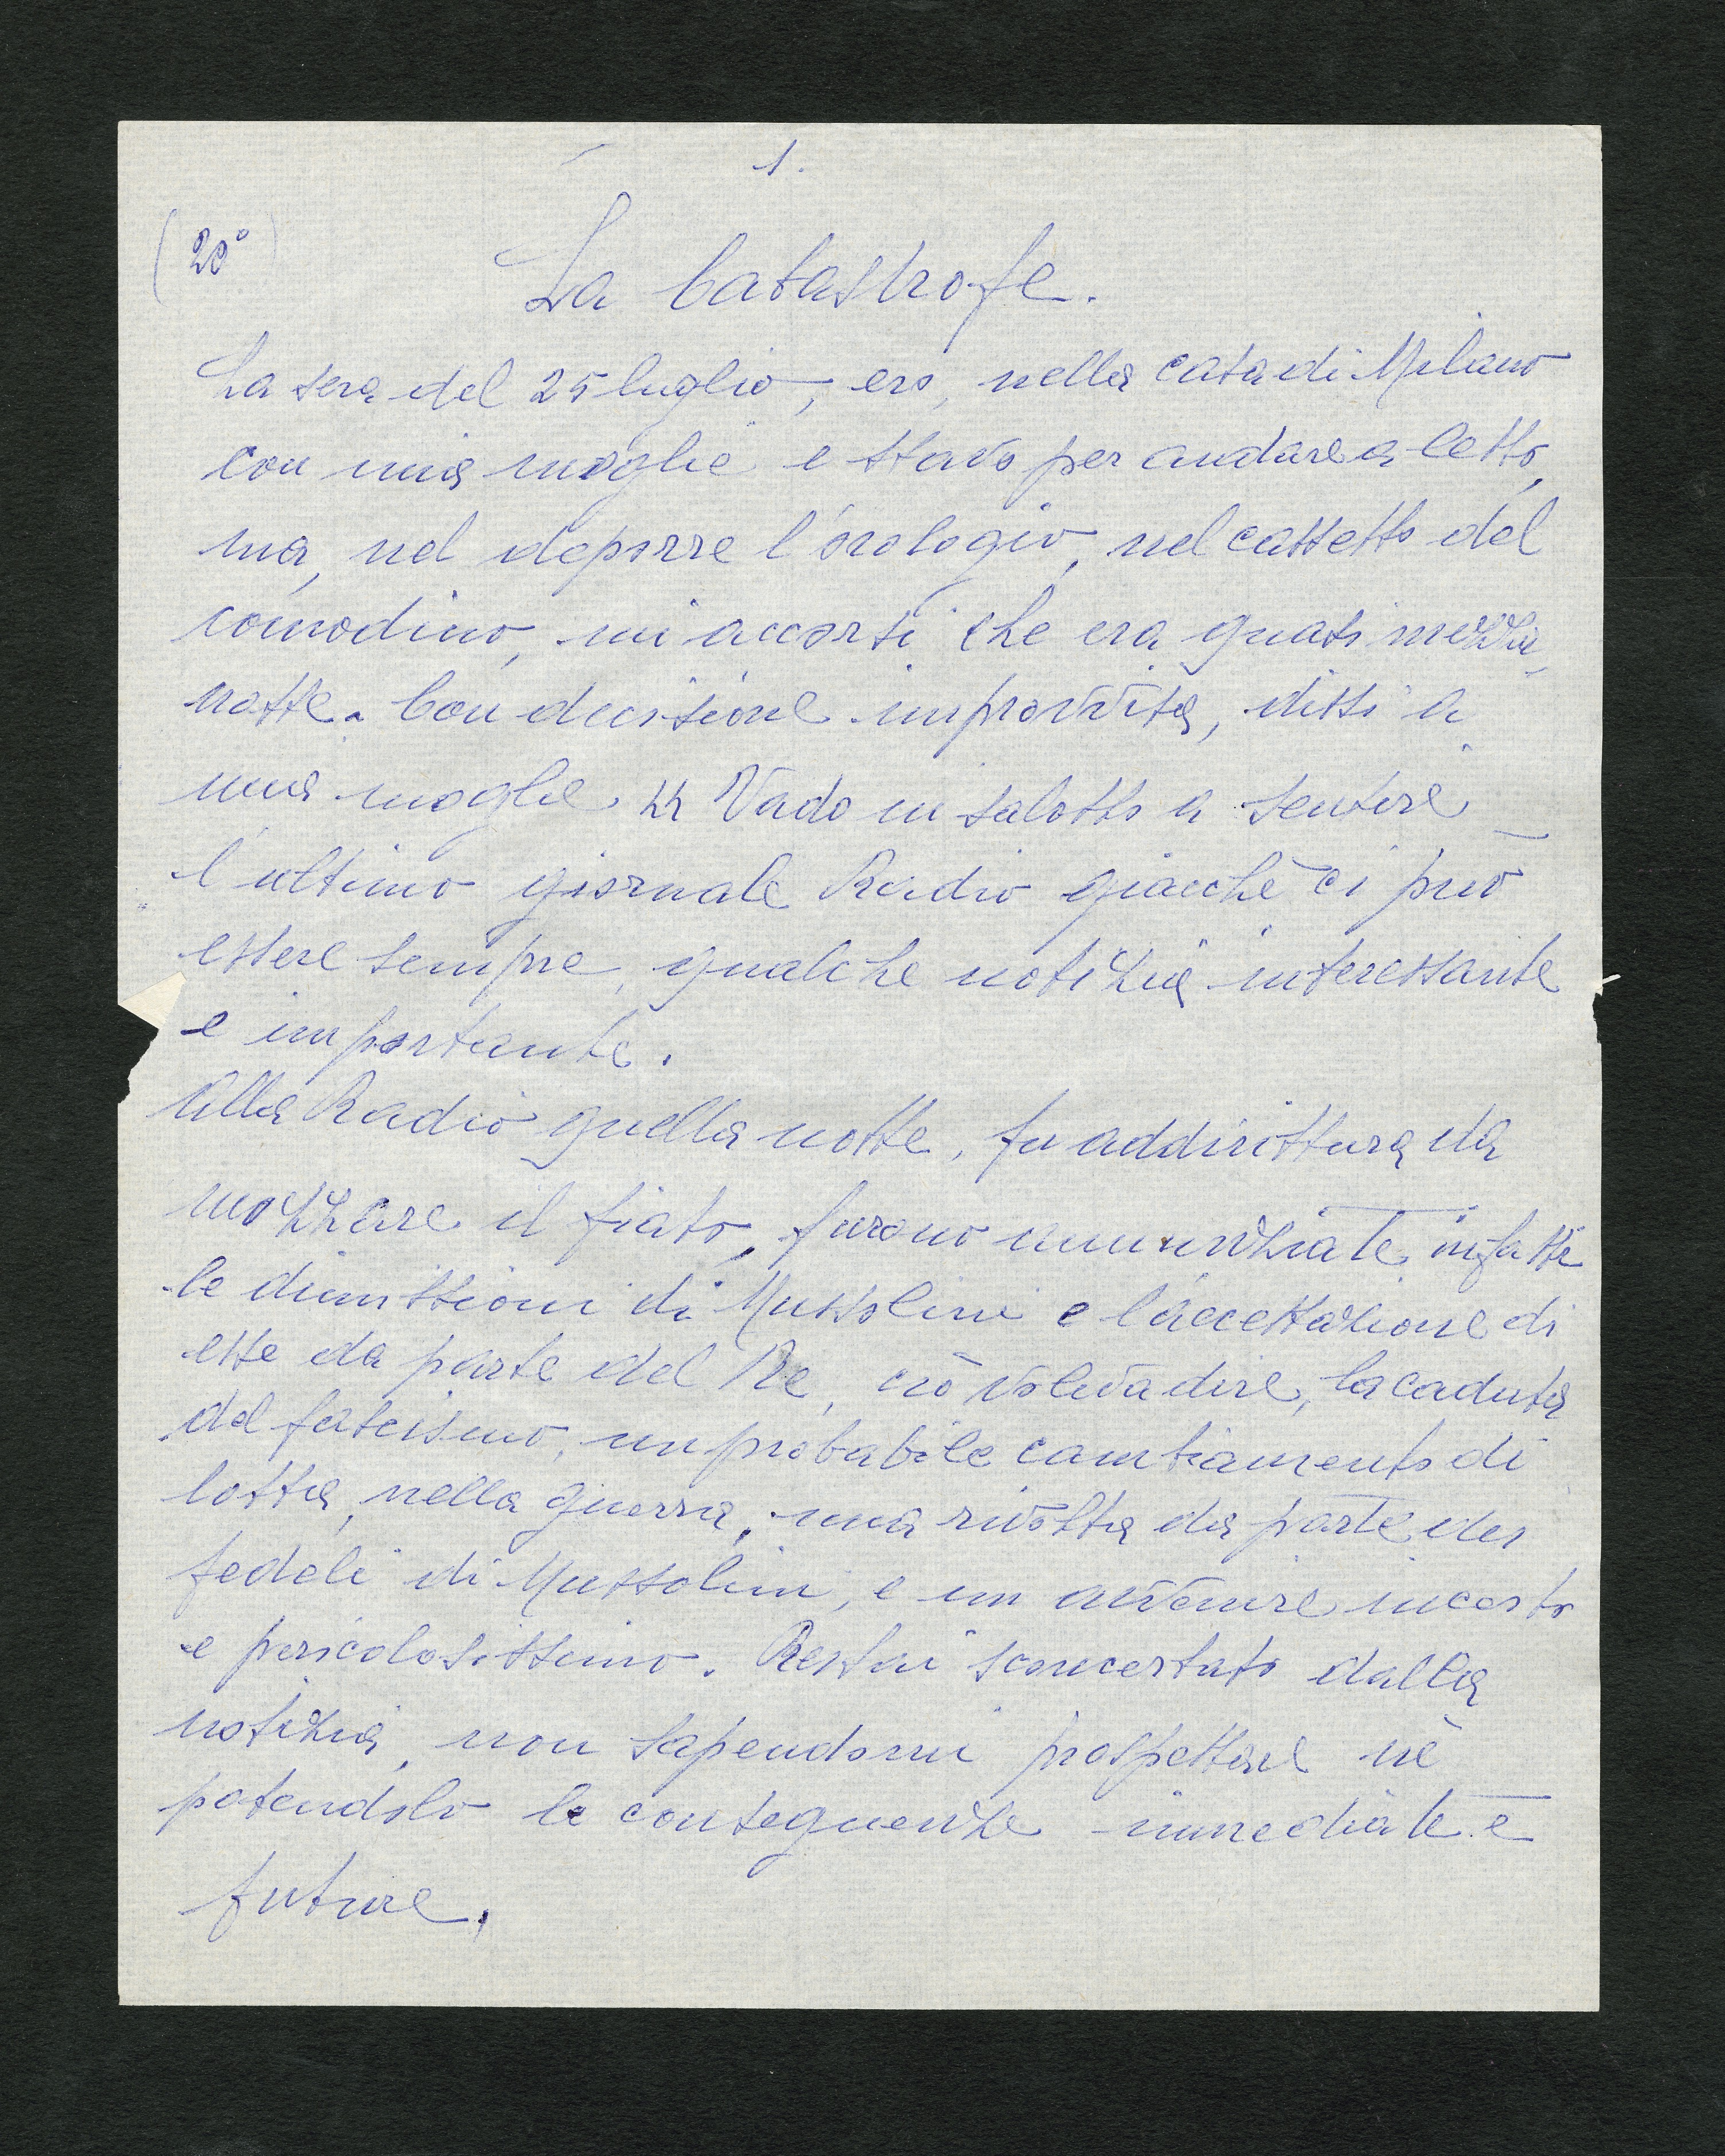 1.
(20°)
La Catastrofe.
La sera del 25 luglio, ero, nella casa di Milano
con mia moglie e stavo per andare a letto,
ma, nel deporre l'orologio, nel cassetto del
comodino, mi accorsi che era quasi mezza
notte. Con decisione improvvisa, dissi a
mia moglie " Vado in salotto a sentire
l'ultimo giornale Radio giacchè ci può
essere sempre, qualche notizia interessante
e importante.
Alla Radio quella notte, fu addirittura da
mozzare il fiato, furono annunziate infatti
le dimissioni di Mussolini e l'accettazione di
esse da parte del Re, ciò voleva dire, la caduta
del fascismo, un probabile cambiamento di
lotta, nella guerra, una rivolta da parte dei
fedeli di Mussolini, e un avvenire incerto
e pericolosissimo. Restai sconcertato dalla
notizia, non sapendomi prospettare nè
potendolo le conseguenze immediate e
future.